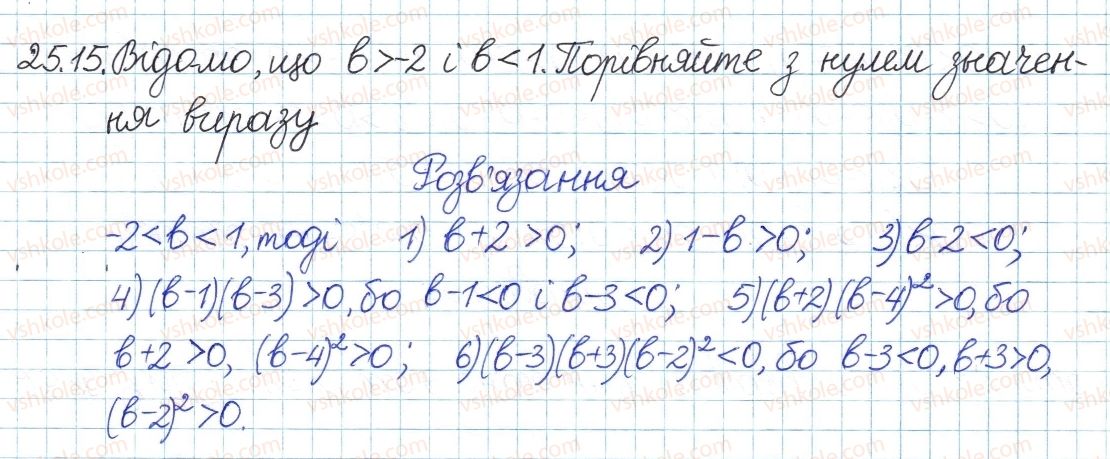 25.15. Відомо, що b>-2 і b<1. Порівняйте з нулем значен-
ня виразу
Розв'язання
-2<b<1, тоді 1) b+2>0; 2) 1-b>0; 3) b-2<0;
4) (b-1)(b-3)>0, бо b-1<0 і b-3<0; 5) (b+2)(b-4)²>0, бо
b+2>0, (b-4)²>0; 6) (b-3)(b+3)(b-2)²<0, бо b-3<0, b+3>0,
(b-2)²>0.